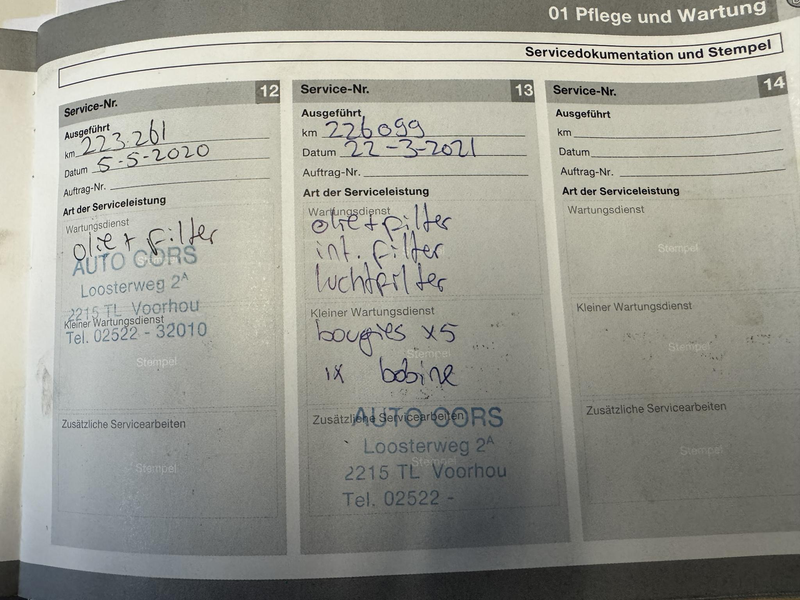 01 Pflege und Wartung
Servicedokumentation und Stempel
Service-Nr. 12
Ausgeführt
km 223.261
Datum 5-5-2020
Auftrag-Nr.
Art der Serviceleistung
Wartungsdienst
olie + filter
AUTO CORS
Loosterweg 2A
2215 TL Voorhou
Kleiner Wartungsdienst
Tel. 02522 - 32010
Stempel
Zusätzliche Servicearbeiten
Stempel
Service-Nr. 13
Ausgeführt
km 226099
Datum 22-3-2021
Auftrag-Nr.
Art der Serviceleistung
Wartungsdienst
olie + filter
int. filter
luchtfilter
Kleiner Wartungsdienst
bougies x5
Stempel
1x bobine
Zusätzliche Servicearbeiten
AUTO CORS
Loosterweg 2A
Stempel
2215 TL Voorhou
Tel. 02522 -
Service-Nr. 14
Ausgeführt
km
Datum
Auftrag-Nr.
Art der Serviceleistung
Wartungsdienst
Stempel
Kleiner Wartungsdienst
Stempel
Zusätzliche Servicearbeiten
Stempel